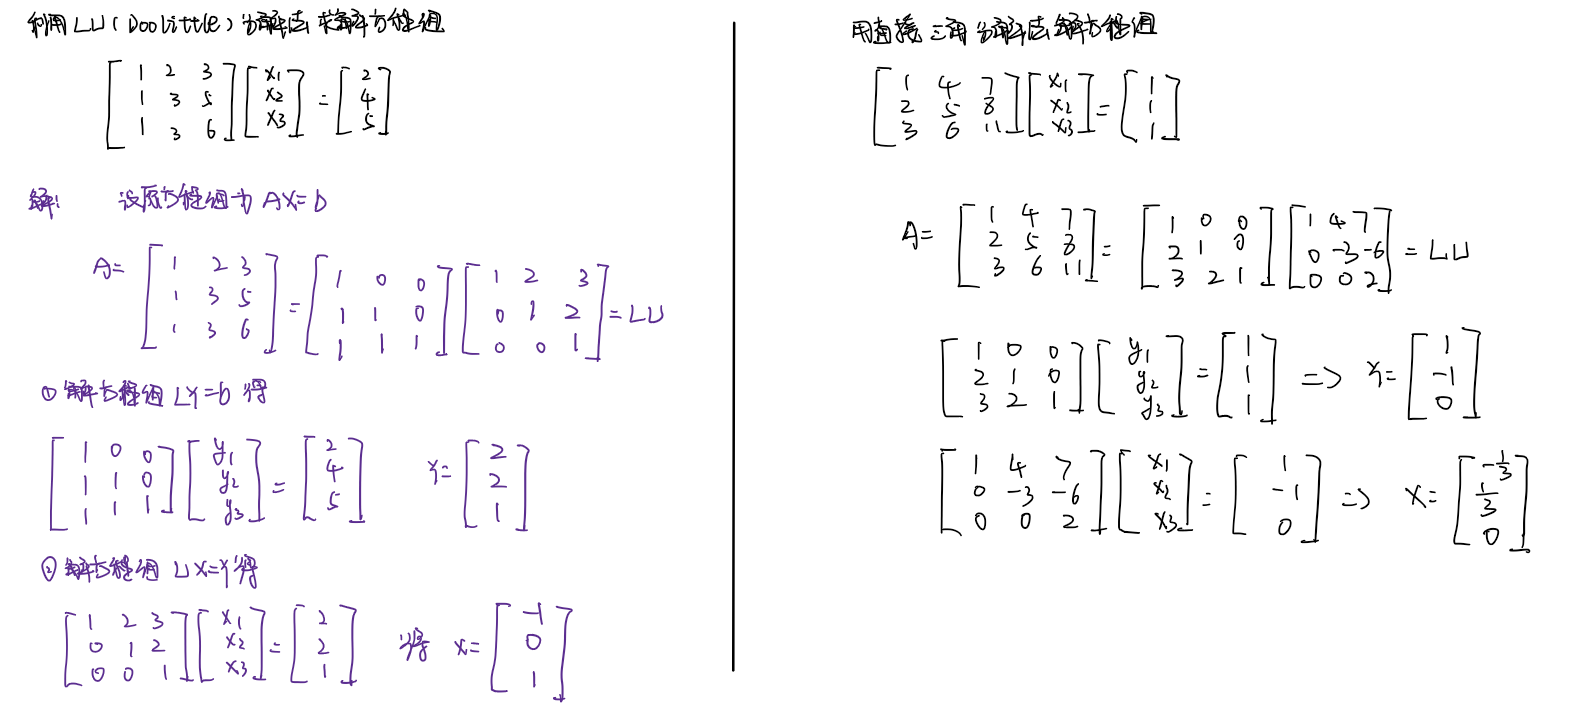 利用LU(Doolittle)分解法求解方程组
[1 2 3; 1 3 5; 1 3 6][x1; x2; x3] = [2; 4; 5]
解: 设原方程组为 AX=b
A= [1 2 3; 1 3 5; 1 3 6] = [1 0 0; 1 1 0; 1 1 1][1 2 3; 0 1 2; 0 0 1] = LU
① 解方程组 LY=b 得
[1 0 0; 1 1 0; 1 1 1][y1; y2; y3] = [2; 4; 5] Y= [2; 2; 1]
② 解方程组 UX=Y 得
[1 2 3; 0 1 2; 0 0 1][x1; x2; x3] = [2; 2; 1] 得 X= [-1; 0; 1]
用直接三角分解法解方程组
[1 4 7; 2 5 8; 3 6 11][x1; x2; x3] = [1; 1; 1]
A= [1 4 7; 2 5 8; 3 6 11] = [1 0 0; 2 1 0; 3 2 1][1 4 7; 0 -3 -6; 0 0 2] = LU
[1 0 0; 2 1 0; 3 2 1][y1; y2; y3] = [1; 1; 1] => Y= [1; -1; 0]
[1 4 7; 0 -3 -6; 0 0 2][x1; x2; x3] = [1; -1; 0] => X= [-1/3; 1/3; 0]